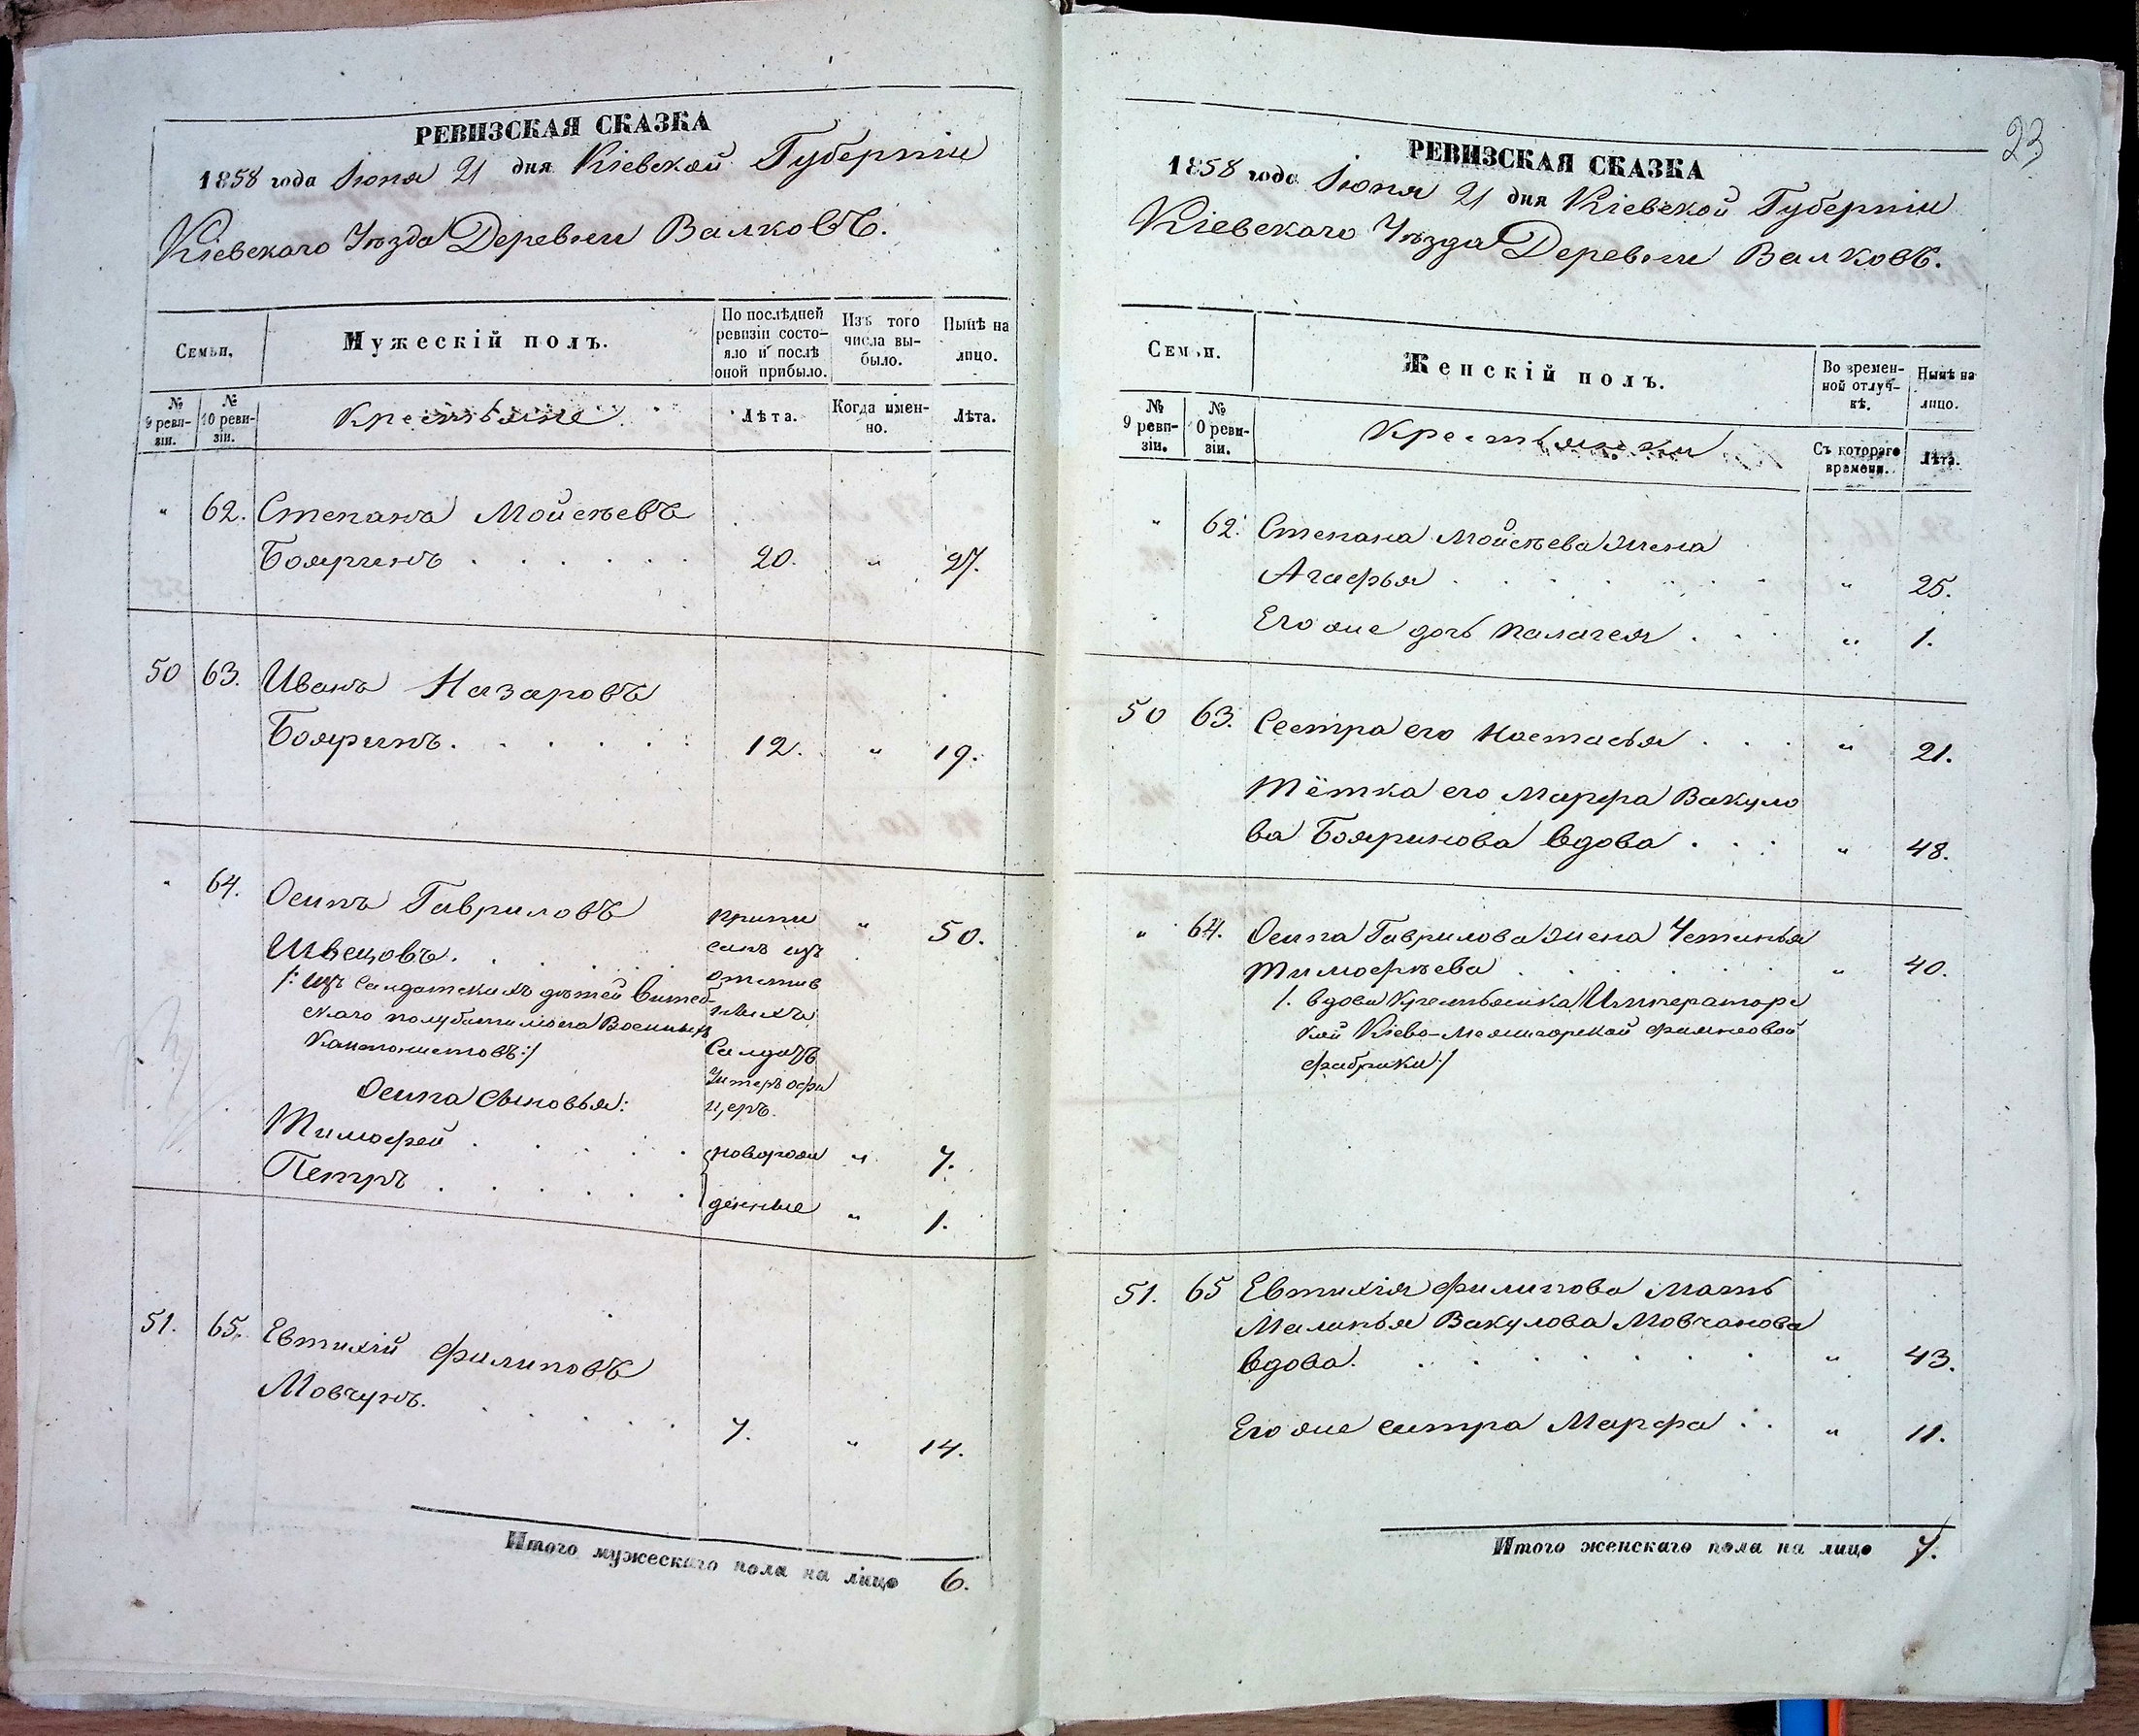 РЕВИЗСКАЯ СКАЗКА
1858 года Іюня 21 дня Кіевской Губерніи
Кіевскаго Уѣзда Деревни Валковъ.
Семьи.
Мужескій полъ.
По послѣдней ревизіи состояло и послѣ оной прибыло.
Изъ того числа выбыло.
Нынѣ на лицо.
№ 9 ревизіи.
№ 10 ревизіи.
Крестьяне
Лѣта.
Когда именно.
Лѣта.
" 62. Степанъ Мойсѣевъ
Бояринъ . . . . . . 20. " 27.
50 63. Иванъ Назаровъ
Бояринъ. . . . . . 12. " 19.
" 64. Осипъ Гавриловъ припи " 50.
Швецовъ. . . . . санъ изъ
/: изъ Салдатскихъ дѣтей Витеб- отстав
скаго полубаталіона Военныхъ ныхъ
Кантонистовъ:/ Салдатъ
Осипа Сыновья: Унтеръ офи
церъ.
Тимофей . . . . . новорож " 7.
Петръ . . . . . . денные " 1.
51. 65. Евтихій Филиповъ
Мовчунъ. . . . . . 7. " 14.
Итого мужескаго пола на лицо 6.
23
РЕВИЗСКАЯ СКАЗКА
1858 года Іюня 21 дня Кіевской Губерніи
Кіевскаго Уѣзда Деревни Валковъ.
Семьи.
Женскій полъ.
Во временной отлучкѣ.
Нынѣ на лицо.
№ 9 ревизіи.
№ 0 ревизіи.
Крестьянки
Съ котораго времени.
Лѣта.
" 62. Степана Мойсѣева жена
Агафья . . . . . . " 25.
Его же дочь Палагея . . . " 1.
50 63. Сестра его Настасья . . . " 21.
Тётка его Марфа Вакуло
ва Бояринова вдова . . . " 48.
" 64. Осипа Гаврилова жена Устинья
Тимофѣева . . . . . . " 40.
/. вдова Крестьянка Императорс
кой Кіево-Межигорской фаянсовой
фабрики:/
51. 65 Евтихія Филипова Мать
Маланья Вакулова Мовчанова
вдова. . . . . . . " 43.
Его же систра Марфа . . " 11.
Итого женскаго пола на лицо 7.